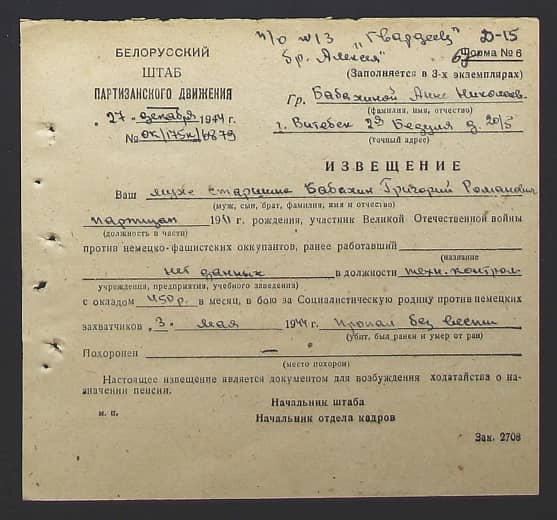 п/о №13 "Гвардеец" Д-15
бр. Алексея
Форма № 6
БЕЛОРУССКИЙ
ШТАБ
ПАРТИЗАНСКОГО ДВИЖЕНИЯ
(Заполняется в 3-х экземплярах)
Гр. Бабахиной Анне Николаев.
(фамилия, имя, отчество)
"27" декабря 1944 г.
№ ок/175к/6879
г. Витебск д. 20/5
(точный адрес)
ИЗВЕЩЕНИЕ
Ваш муж старшина Бабахин Григорий Романович
(муж, сын, брат, фамилия, имя и отчество)
партизан 1911 г. рождения, участник Великой Отечественной войны
(должность в части)
против немецко-фашистских оккупантов, ранее работавший
(название
нет данных в должности техн. контрол
учреждения, предприятия, учебного заведения)
с окладом 450 р. в месяц, в бою за Социалистическую родину против немецких
захватчиков "3" мая 1944 г. пропал без вести
(убит, был ранен и умер от ран)
Похоронен —
(место похорон)
Настоящее извещение является документом для возбуждения ходатайства о на-
значении пенсии.
Начальник штаба
м. п.
Начальник отдела кадров
Зак. 2708